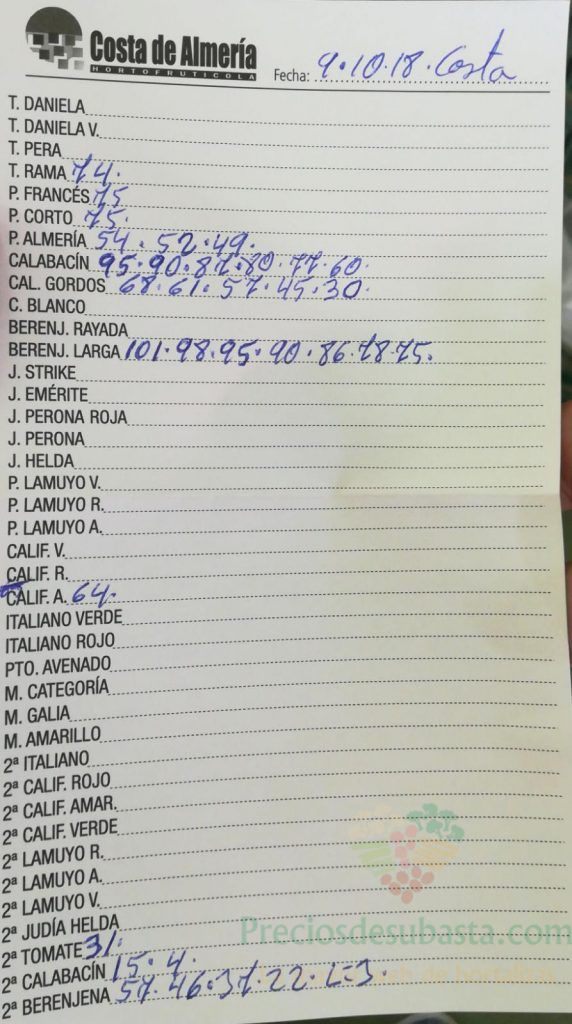 Costa de Almería
HORTOFRUTICOLA
Fecha: 9.10.18. Costa
T. DANIELA
T. DANIELA V.
T. PERA
T. RAMA 74.
P. FRANCÉS 75
P. CORTO 75.
P. ALMERÍA 54. 52. 49.
CALABACÍN 95. 90. 87. 80. 77. 60.
CAL. GORDOS 68. 61. 57. 45. 30.
C. BLANCO
BERENJ. RAYADA
BERENJ. LARGA 101. 98. 95. 90. 86. 78. 75.
J. STRIKE
J. EMÉRITE
J. PERONA ROJA
J. PERONA
J. HELDA
P. LAMUYO V.
P. LAMUYO R.
P. LAMUYO A.
CALIF. V.
CALIF. R.
CALIF. A. 64.
ITALIANO VERDE
ITALIANO ROJO
PTO. AVENADO
M. CATEGORÍA
M. GALIA
M. AMARILLO
2ª ITALIANO
2ª CALIF. ROJO
2ª CALIF. AMAR.
2ª CALIF. VERDE
2ª LAMUYO R.
2ª LAMUYO A.
2ª LAMUYO V.
2ª JUDÍA HELDA
Preciosdesubasta.com
2ª TOMATE 31.
2ª CALABACÍN 15. 4.
2ª BERENJENA 57. 46. 37. 22.